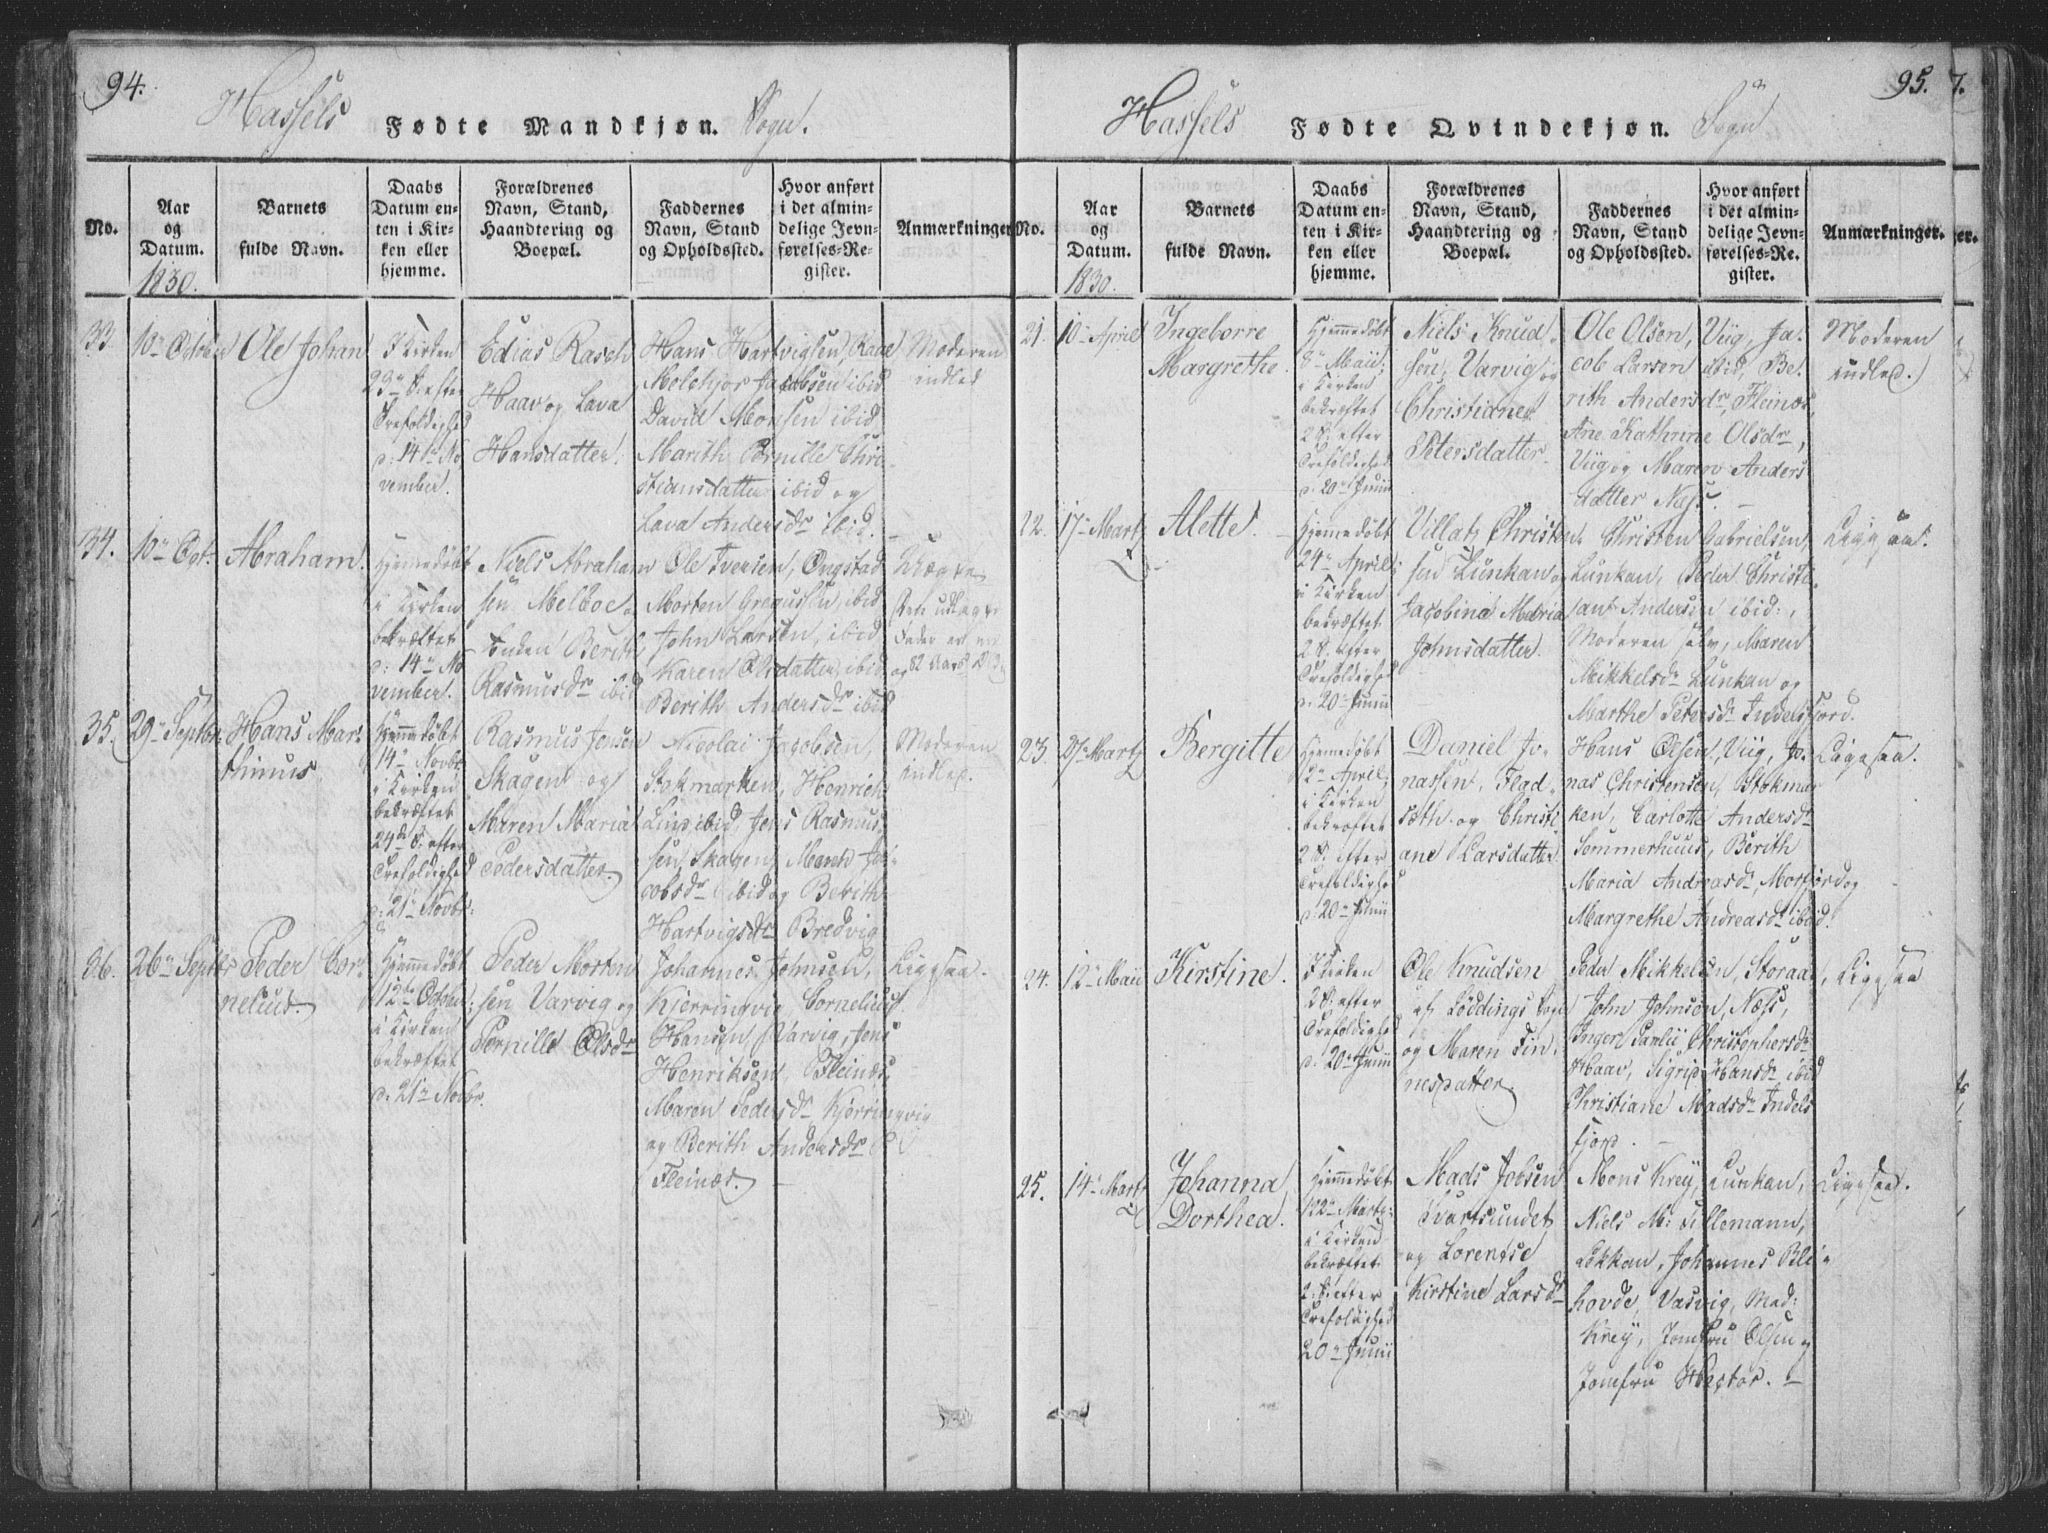 94.
Hassels Fødte Mandkjøn. Sogn.
No.
Aar
og
Datum.
1830.
Barnets
fulde Navn.
Daabs
Datum en-
ten i Kir-
ken eller
hjemme.
Forældrenes
Navn, Stand,
Haandtering og
Boepæl.
Faddernes
Navn, Stand
og Opholdssted.
Hvor anført
i det almin-
delige Jevn-
førelses-Re-
gister.
Anmærkninger.
33.
10 Octbr
Ole Johan
I Kirken
23 S: efter
Trefoldighed
d: 14 No
vember.
Edias Rasch
Haav og Lava
Hansdatter.
Hans Hartvigsen Raae
Melchjor Jacobsen ibid
David Monsen ibid
Marith Pernille Chri-
stiansdatter ibid og
Lava Andersdr ibid.
Moderen
indled
34.
10 Oct.
Abraham.
Hjemedøbt
i Kirken
bekræftet
d: 14 No
vember.
Niels Abraham
sen Melboe og
Enken Berith
Rasmusdr ibid
Ole Iversen, Ongstad
Morten Gregusen, ibid
John Larsen, ibid
Karen Olsdatter, ibid
Berith Andersdr ibid
35.
29 Septbr.
Hans Mar-
thinus
Hjemedøbt
14 Novbr
i Kirken
bekræftet
24 S: efter
Trefoldighed
d: 21 Novbr:
Rasmus Jensen
Skagen og
Maren Maria
Pedersdatter.
Nicolai Jacobsen,
Stokmarken, Henrich
Lind ibid, Jens Rasmus-
sen, Skagen, Maren Ja-
cobsdr ibid og Berith
Hartvigsdr Bredvig
Moderen
indled.
36.
26 Septbr
Peder Cor-
nelius.
Hjemedøbt
12 October
i Kirken
bekræftet
d. 21 Novbr.
Peder Morten
sen Varvig og
Pernille Olsdr
Johannes Johnsen,
Kierringvig, Cornelius
Hansen, Varvig, Jens
Henriksen, Fleines,
Maren Pedersdr Kjerringvig
og Berith Andersdr
Fleines.
Liggsaa.
95.
Hassels Fødte Qvindekjøn. Sogn
No.
Aar
og
Datum.
1830.
Barnets
fulde Navn.
Daabs
Datum en-
ten i Kir-
ken eller
hjemme.
Forældrenes
Navn, Stand,
Haandtering og
Boepæl.
Faddernes
Navn, Stand
og Opholdssted.
Hvor anført
i det almin-
delige Jevn-
førelses-Re-
gister.
Anmærkninger.
21.
10 April
Ingeborre
Margrethe.
Hjemmedøbt
8 Maii;
i Kirken
bekræftet
2 S: efter
Trefoldighed
d. 20 Junii
Niels Knud-
sen, Varvig og
Christiane
Petersdatter
Ole Olsen, Viig, Ja-
cob Larsen ibid, Be-
rith Andersdr, Fleines,
Ane Kathrine Olsdr,
Viig og Maren Anders
datter Næss.
Moderen
indled.
22.
17 Martz
Alette.
Hjemedøbt
24 April;
i Kirken
bekræftet
2 S: efter
Trefoldighed
d. 20 Junii
Villatz Christen
sen Lunkan og
Jacobina Maria
Johnsdatter.
Christen Gabrielsen,
Lunkan, Peder Christi-
ant Andersen ibid:,
Moderen selv, Maren
Mikkelsdr Lunkan og
Marthe Petersdr Indelsfjord.
Liggsaa.
23.
27 Martz
Bergitte
Hjemedøbt
12 April;
i Kirken
bekræftet
2 S: efter
Trefoldighed
d. 20 Junii
Daniel Jo-
nassen, Flad-
sæth og Christi-
ane Larsdatter
Hans Olsen, Viig, Jo-
nas Christensen, Stokmar-
ken, Carlotte Andersdr
Sommerhuus, Berith
Maria Andreasdr, Morfjord og
Margrethe Andreasdr ibid.
Liggsaa.
24.
12 Maii
Kirstine.
I Kirken
2 S: efter
Trefoldighed
d. 20 Junii
Ole Knudsen
af Løddings Sogn
og Maren Fin-
nesdatter.
Peder Mikkelsen, Storaa,
John Johnsen, Næss,
Inger Pærlii Christophersdr
Haav, Sigrid Hansdr ibid
Christiane Madsdr Indels
fjord.
Liggsaa
25.
14 Martz
Johanna
Dorthea.
Hjemmedøbt
22 Martz;
i Kirken
bekræftet
2 S: efter
Trefoldighed
20 Junii
Mads Jobsen
Svartsundet
og Lorentse
Kirstine Larsdr
Mons Krey, Lunkan,
Niels M: Tillemann,
Lekkan, Johannes Bli-
hovde, Vasvig, Mad:
Krey, Jomfru Olsen og
Jomfru Hector.
Liggsaa.